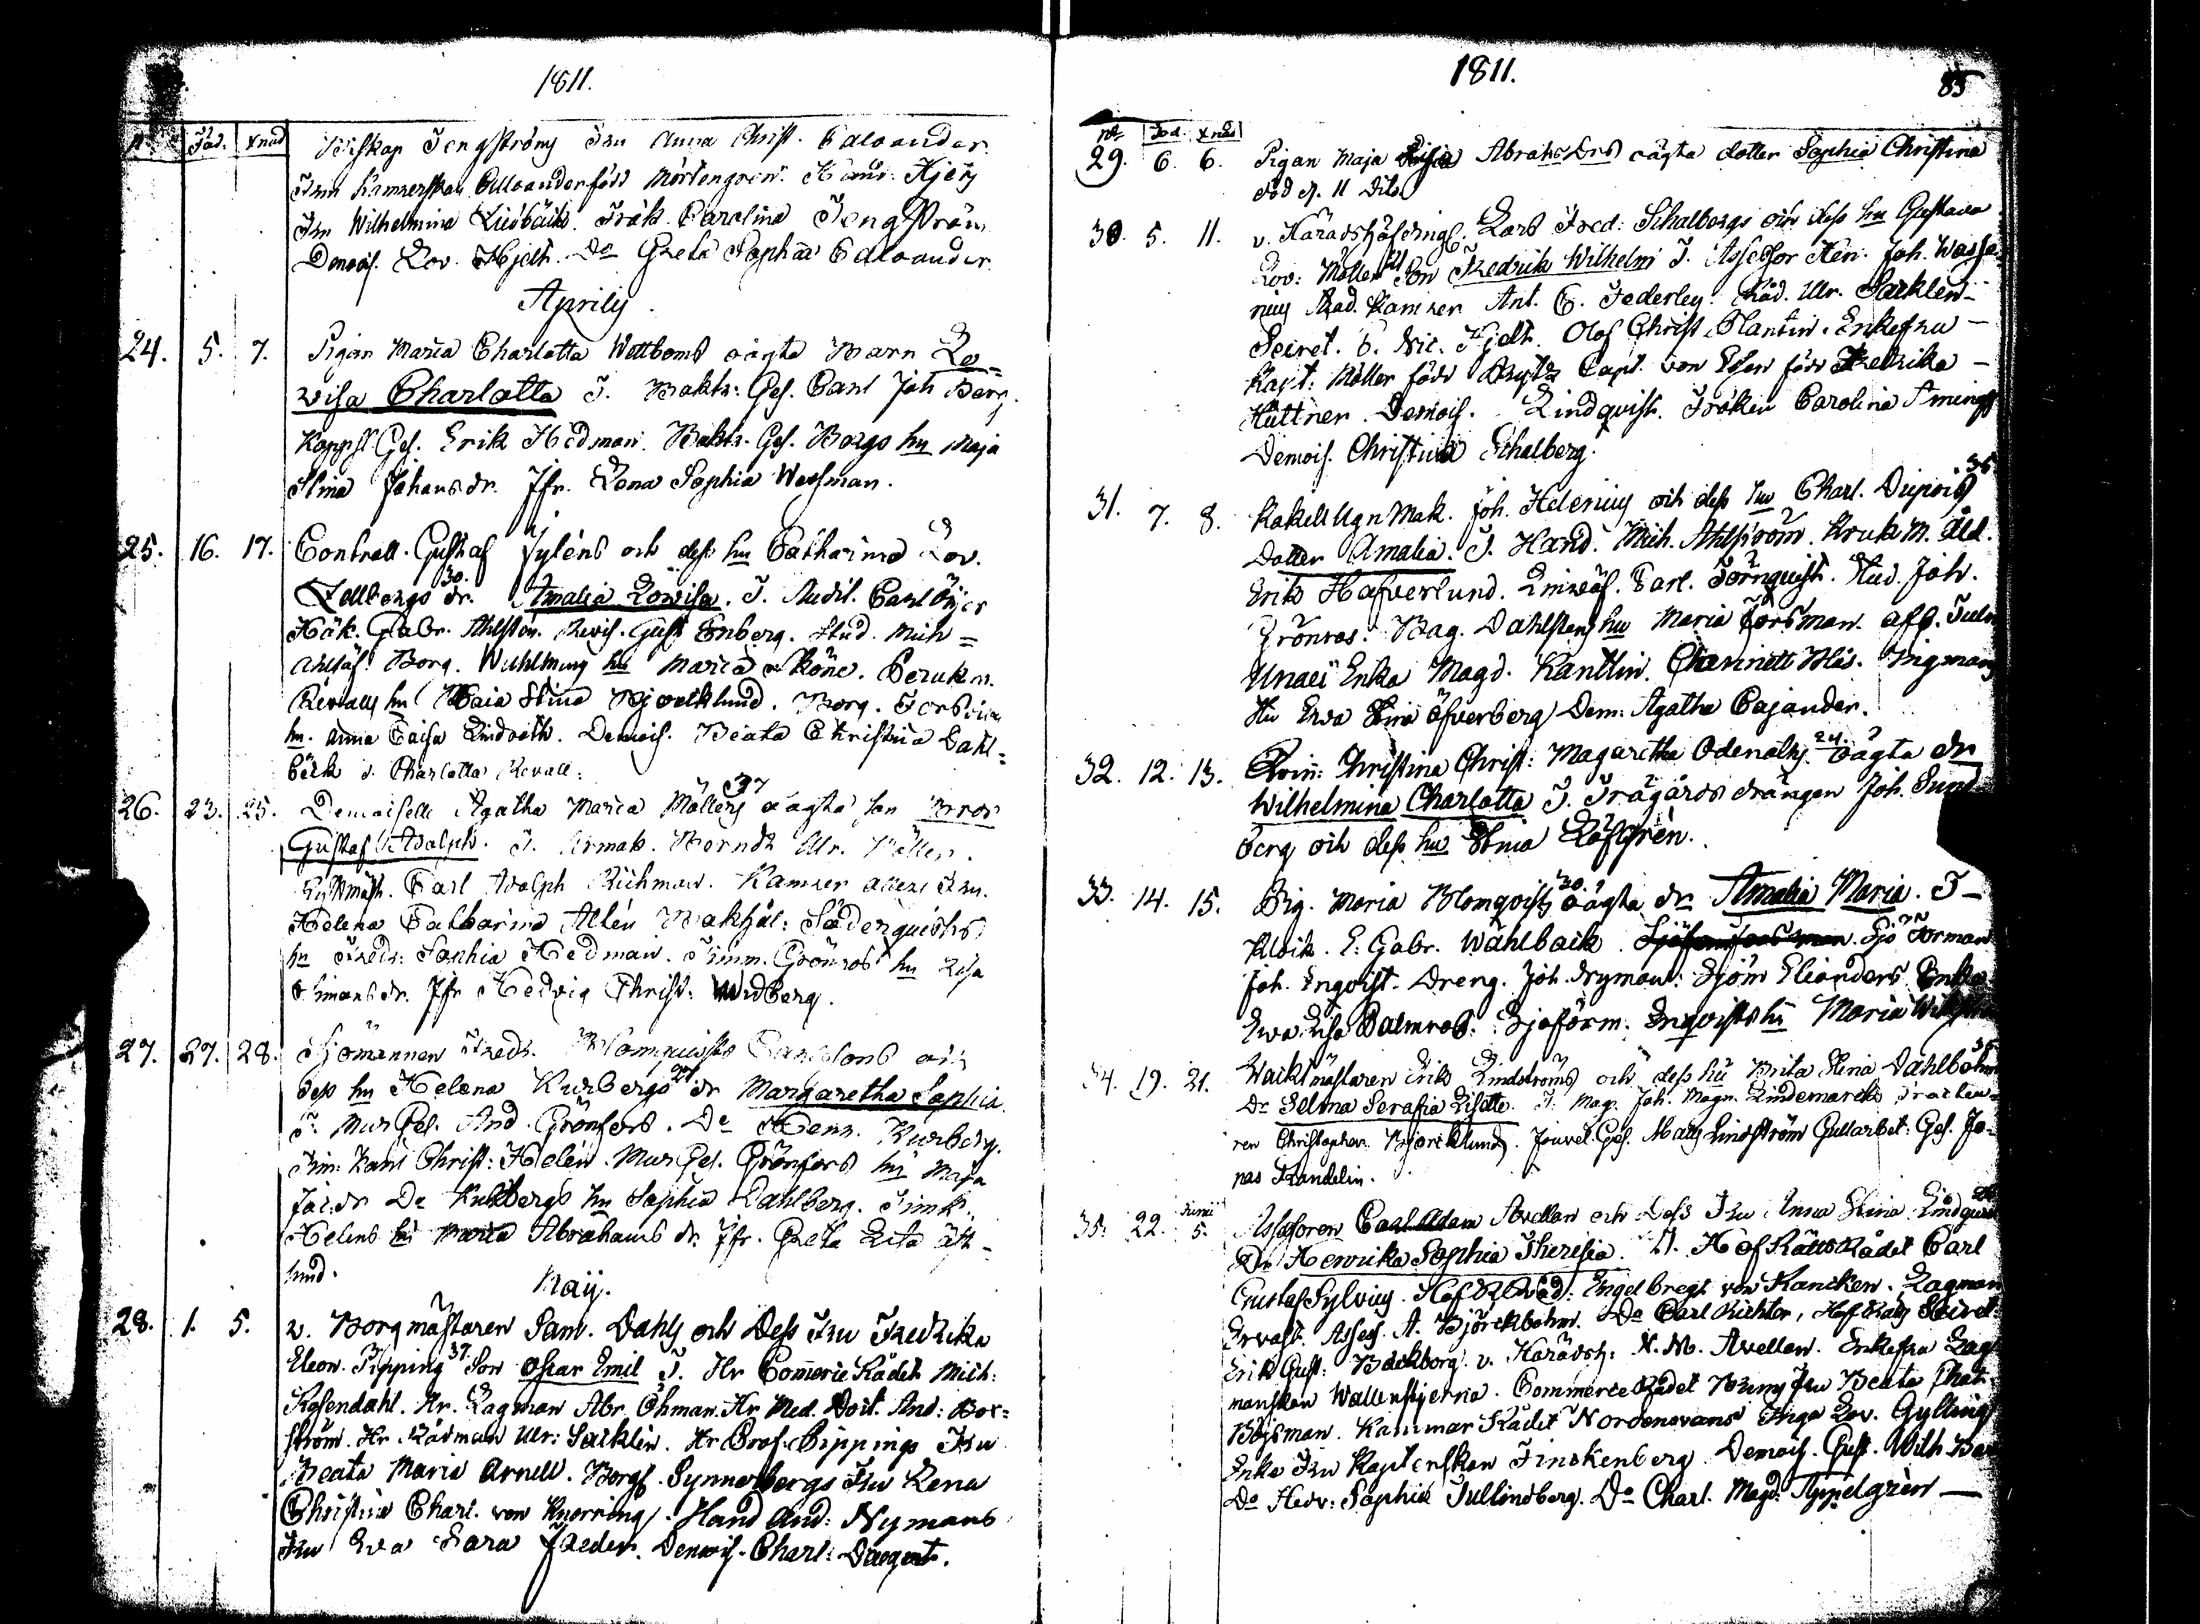 1811.
No Föd. Xnad
Biskop Tengströms Fru Anna Christ. Caloander.
Fru Kamrerskan Calloander född Mårtengren. Hand. Kjerf
Fru Wilhelmina Liedbäck. Frök. Carolina Tengström
Demois. Lov. Hjelt. Do Greta Sophia Caloander.
Aprilis.
24. 5. 7. Pigan Maria Charlotta Wettboms oägta Barn Lo-
wisa Charlotta T. Baktr: Ges. Carl Joh Berg.
Koppsl Ges. Erik Hedman. Baktr. Ges. Bergs hu Maja
Stina Johansdr. Jfr. Lena Sophia Wessman.
25. 16. 17. Controll. Gustaf Fyléns och dess hu Catharina Lov.
Zellbergs 30. dr. Amalia Lowisa. T. Audit. Carl Öijer
Hök. Gabr. Ahlsten. Revis. Gust Enberg. Stud. Mich-
Borg. hu Maria Röne. Perukm.
Revalls hu Maia Stina Björklund. Borg.
hu. Anna Caisa Lindroth. Demois. Beata Christina Dahl-
bäck d. Charlotta Revall.
26. 23. 25. Demoiselle Agatha Maria Möllers 37 oägta son Bror
Gustaf Adolph. T. Berndt Ulr. Möller.
Ryttmäst. Carl Adolph Richman. Kamrer Fru.
Helena Catharina Altén Söderquists
hu Fredr: Sophia Hedman. Timm. Grönros hu Lisa
Simonsdr. Jfr Hedvig Christ: Widberg.
27. 27. 28. Sjömannen Fredr. Blomquists Carlsons och
dess hu Helena Kurbergs 27 dr Margaretha Sophia.
T. Mur Ges. And. Grönfors. Do Henr. Kurberg.
Tim: Karl Christ: Helén. Mur Ges. Grönfors hu Maja
Jac:dr Do Kurbergs hu Sophia Dahlberg. Timk.
Heléns hu Maria Abrahams dr. Jfr. Greta Lisa
lund.
Maij.
28. 1. 5. v. Borgmästaren Sam. Dahls och Dess Fru Fredrika
Eleon. Pipping 37 Son Oscar Emil T. Hr Commerie Rådet Mich:
Rosendahl. Hr. Lagman Abr. Öhman. Hr Med. Doct. And: Bor-
ström. Hr Rådman Ulr: Sacklin. Hr Prof. Pippings Fru
Beata Maria Arnell. Borgs. Synnerbergs Fru Lena
Christina Charl. von Knorring. Hand And: Nymans
Fru Eva Sara Demois. Charl:
1811. 85
No Föd. Xnad
29. 6. 6. Pigan Maja Lisa Abrahsdrs oägta dotter Sophia Christina
död d. 11 Dito
30. 5. 11. v. Häradshöfdingl. Lars Fred: Schalbergs och dess hu Gustava
Lov: Möller 21 Son Fredrik Wilhelm T. Assessor Hen. Joh. Wasse-
nius Rad. Kamrer Ant. G. Federley. Råd. Ulr. Sacklén-
Secret. C. Nic. Hjelt. Olof Christ. Plantin. Enkefru-
Kapt: Möller född Capt. von Essen född Fredrika-
Hüttner. Demois. Lindqvist. Fröken Carolina Aminoff
Demois. Christina Schalberg.
31. 7. 8. KakellUgnMak. Joh. Helenius och dess hu Charl. Dupois 35
Dotter Amalia. T. Hand. Mich. Ahlström. Kruk M. Åld.
Erik Hafverlund. Linwäf. Carl. Törnquist. Stud. Joh.
Grönros. Bag. Dahlstens hu Maria Forsman. afl. Tulln
Unaei Enka Magd. Kantlin. Wigmans
Hu Eva Stina Öfverberg Dem: Agatha Cajander.
32. 12. 13. Qvin: Christina Christ: Magaretha Odenalls 24. oägta dr
Wilhelmina Charlotta T. Trägårds drängen Joh. Sund-
berg och dess hu Stina Löfgrén.
33. 14. 15. Pig. Maria Blomqvists 20. oägta dr Amalia Maria. T-
Klock. E. Gabr. Wahlbäck. Sjö Forman
Joh. Enqvist. Dreng. Joh. Nyman: Sjöm Elianders Enka
Ewa Lisa Palmros. Sjöförm. Enqvists hu Maria
34. 19. 21. Wacktmästaren Erik Lindströms och dess hu Brita Stina Dahlbohm 35
Dr Selma Serafia Lisette. T. Mag. Joh. Magn. Lindemarck
ren Christopher Björcklund. Jouvel. Ges. Mats Lindström Gullarbet: Ges. Jo-
nas Frandelin.
35. 22. Junii 5. Assessoren Carl Adam Avellan och Dess Fru Anna Stina Lindqvist
Dr Henrika Sophia Theresia. T. Hof Rätts Rådet Carl
Gustaf Sylvius. Hof R. Råd. Engelbregt von Kancken. Lagman
Ervast. Assess. A. Björckbohm. Do Carl Richter, Hof Rätts Secret.
Erik Gust: Backborg. v. Häradsh: N. M. Avellan. Enkefru Lag-
manskan Wallenstjerna. Commerce Rådet Bremers Fru Beata Chat.
Böjsman. Kammar Rådet Nordensvans Enga Lov. Gylling
Enke Fru Kaptenskan Finckenberg. Demois. Gust. Wilh.
Do Hedv: Sophia Tullindberg. Do Charl. Magd: Appelgrén-